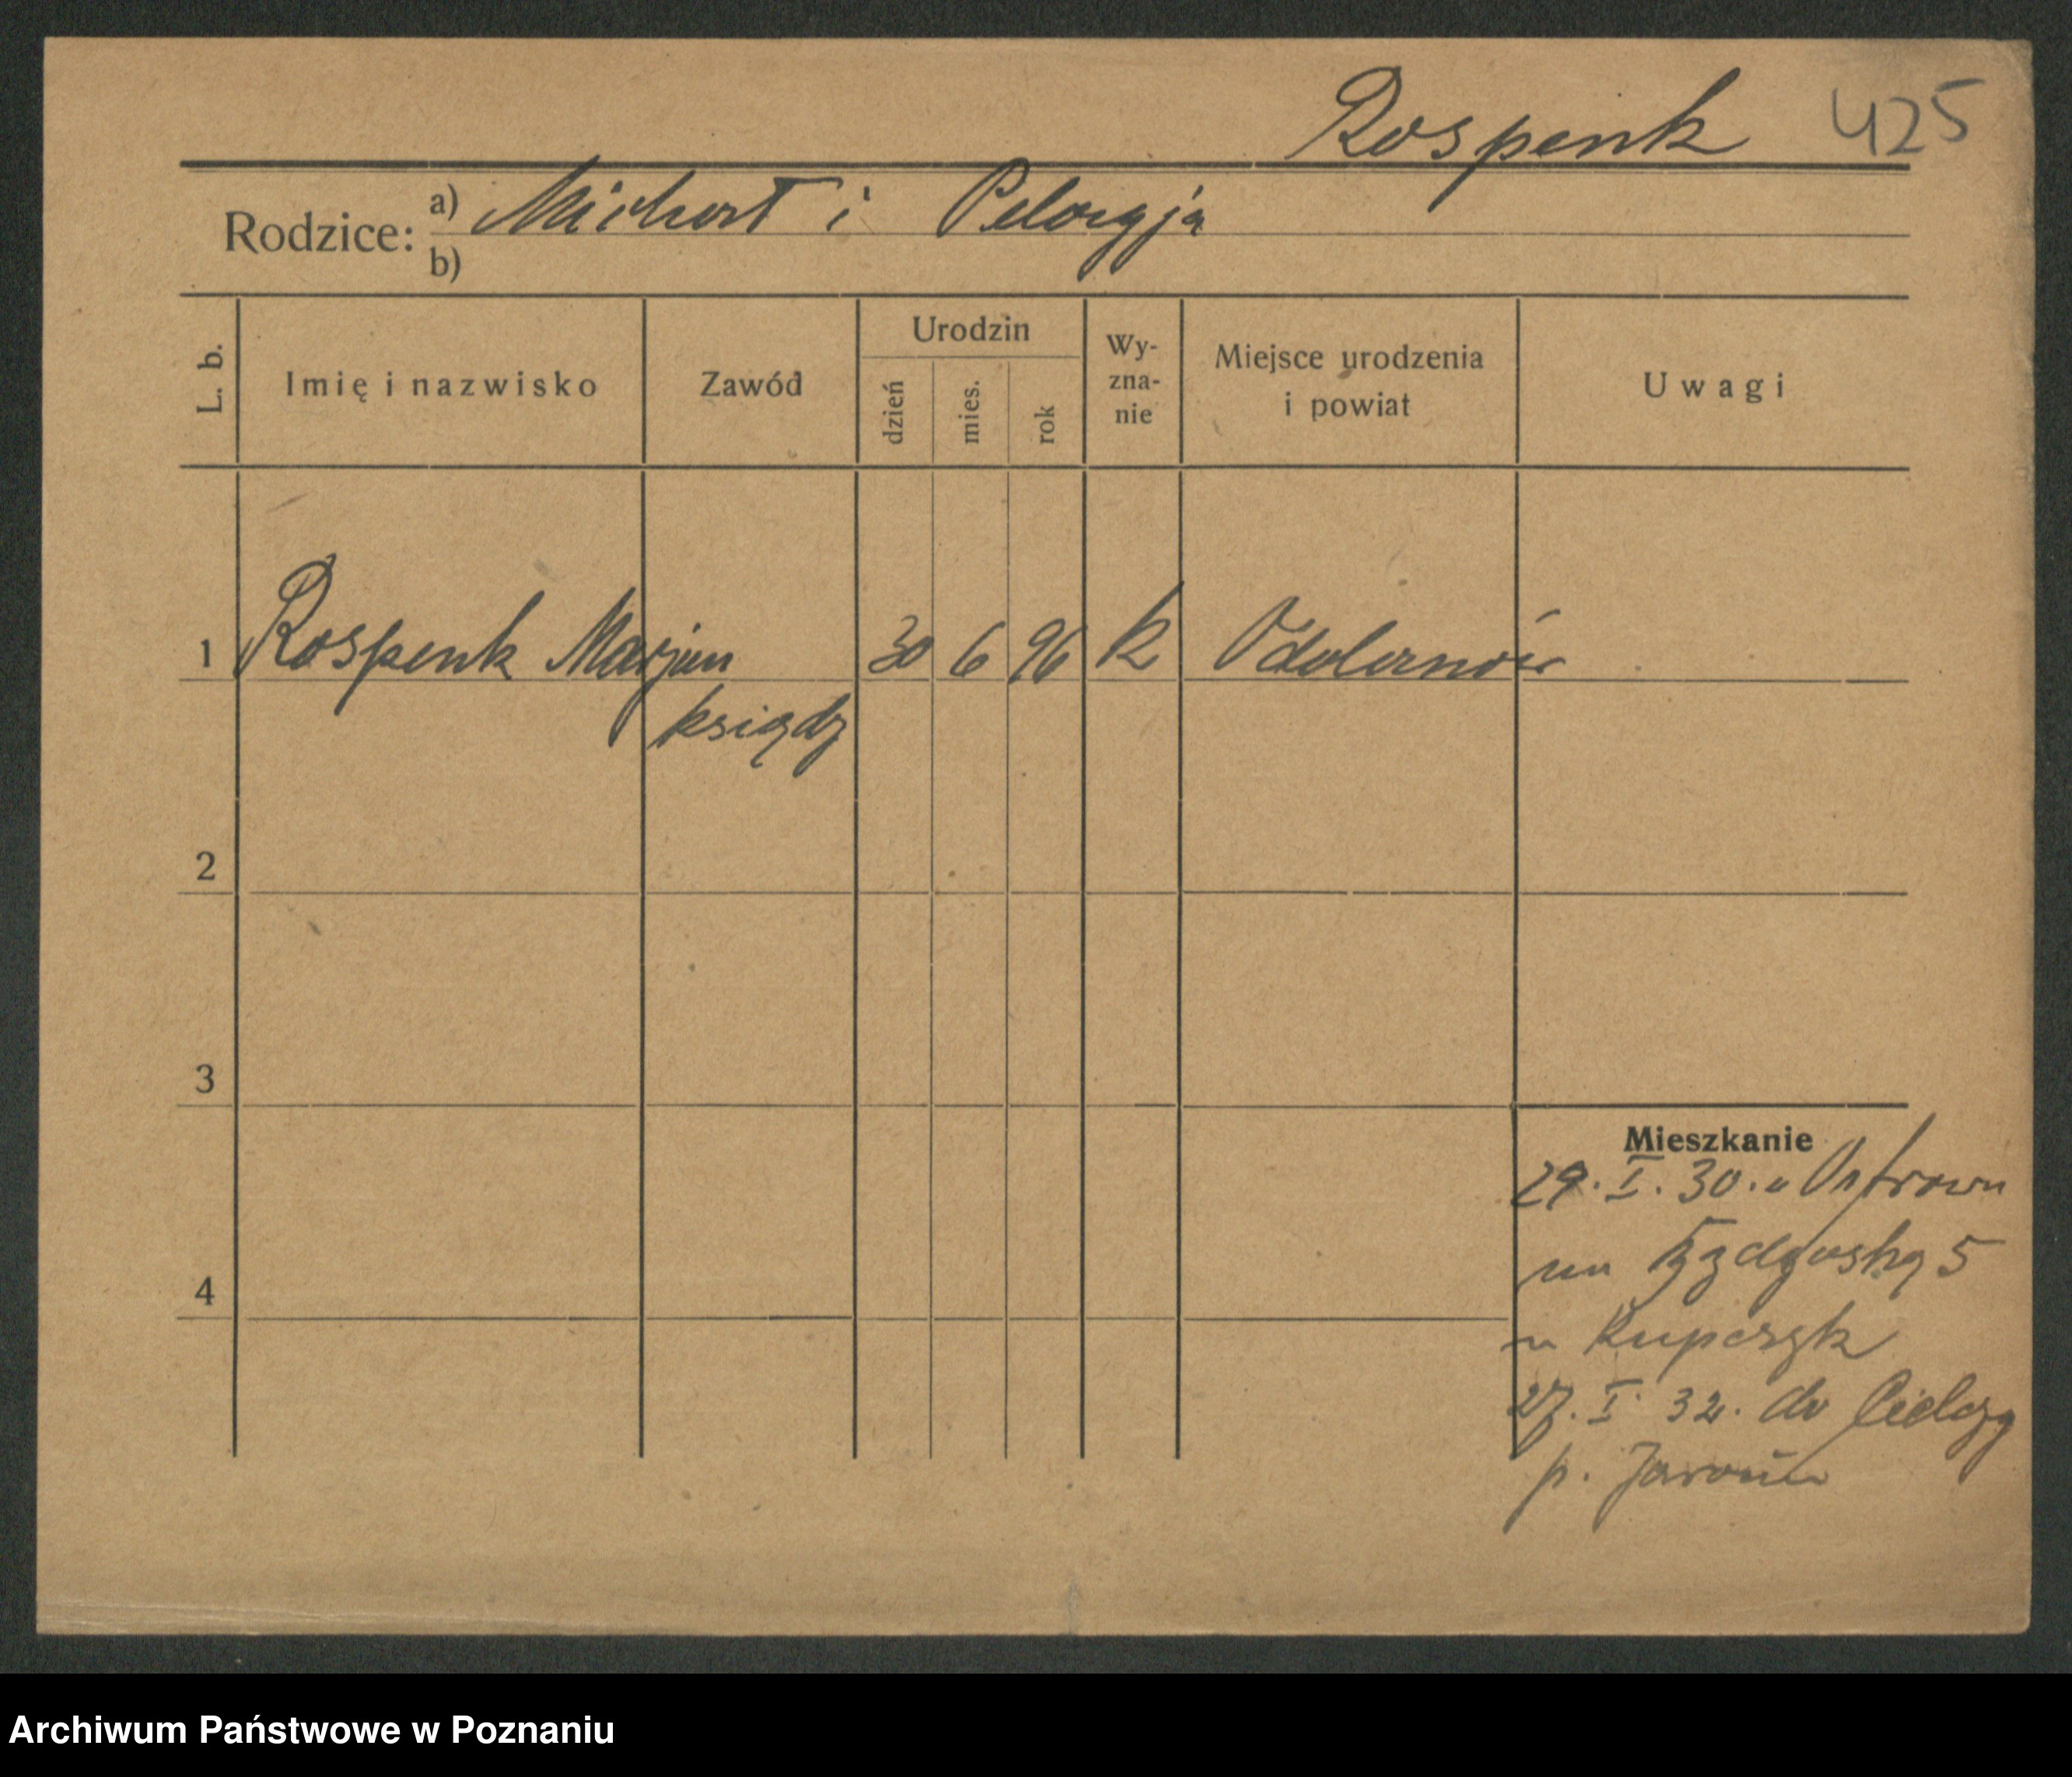 Rospenk 425
Rodzice: a) Michał i Pelagja
b)
L. b. Imię i nazwisko Zawód Urodzin dzień mies. rok Wy-zna-nie Miejsce urodzenia i powiat Uwagi
1 Rospenk Marjan 30 6 96 k Odolanów
ksiądz
2
3
4
Mieszkanie
29. I. 30. z Ostrowa
na 5
u Kupczyk
27. I 32. do Cielczy
p. Jarocin
Archiwum Państwowe w Poznaniu